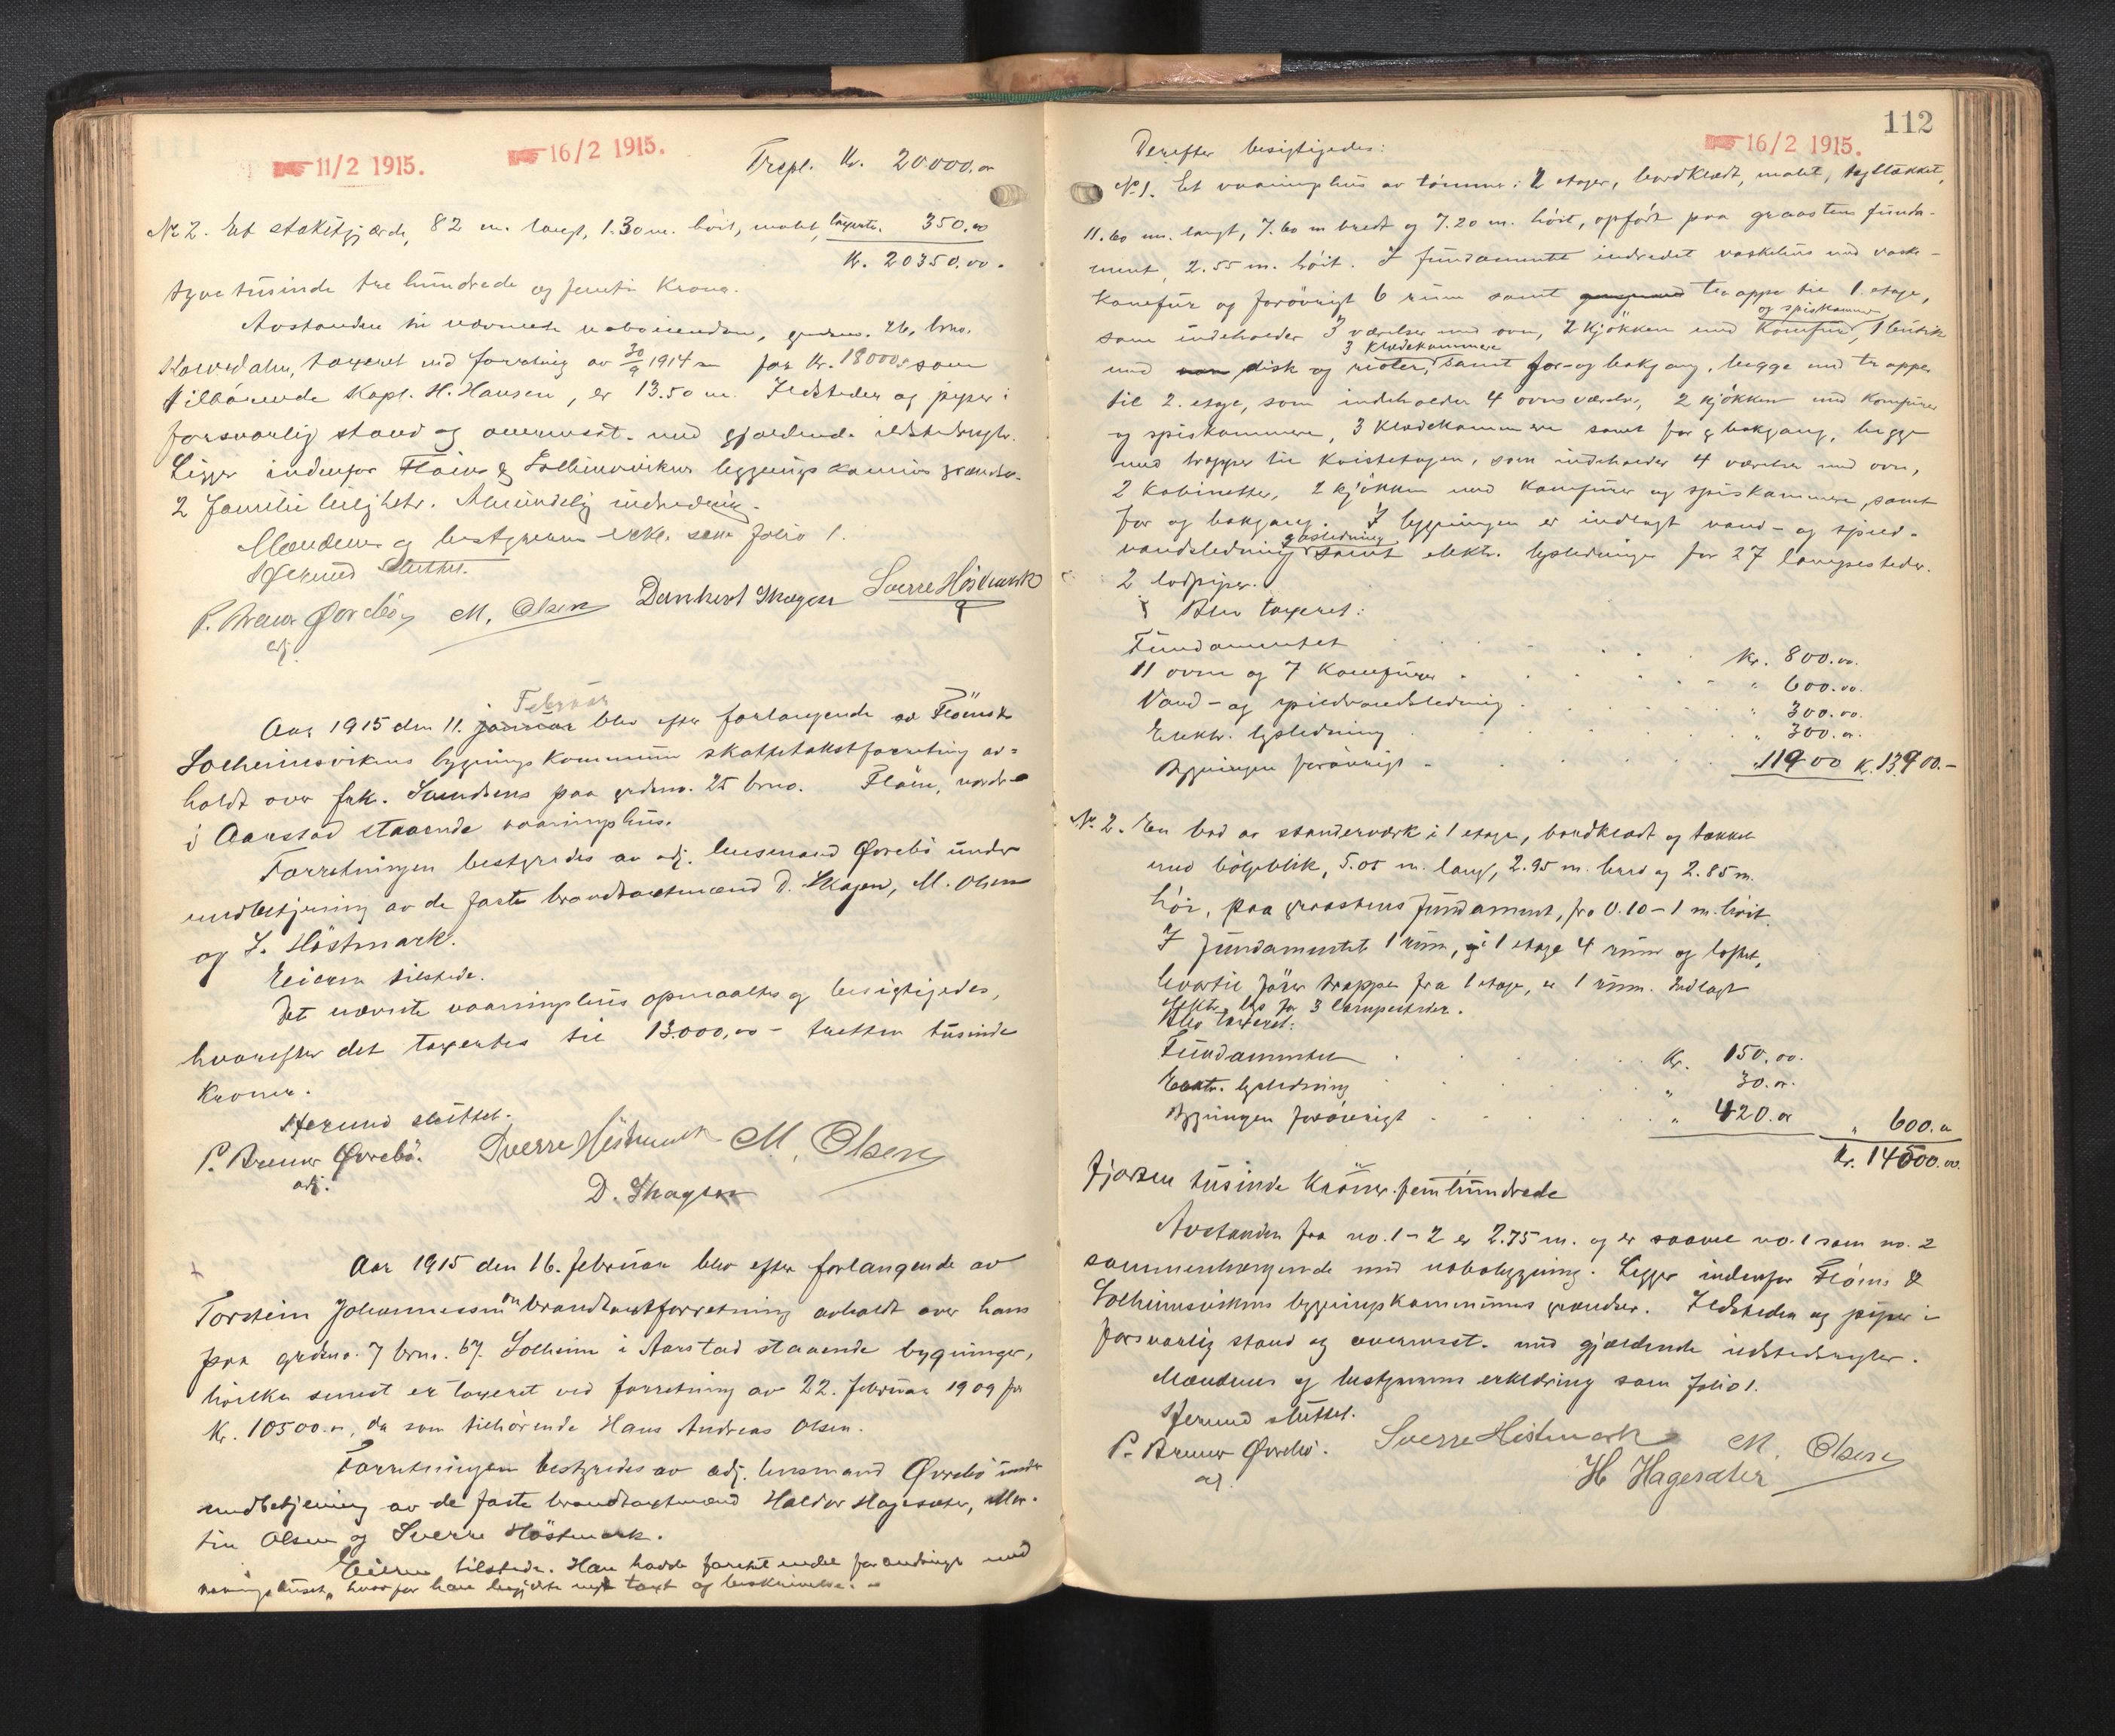 11/2 1915.
16/2 1915.
Trspl. Kr. 20000.00
No 2. Et stakitgjærde, 82 m. langt, 1.30 m. høit, malet, taxerte. 350.00
Kr. 20350.00.
tyve tusinde tre hundrede og femti Kroner.
Avstanden til nævnete nabeiendom, grdno. 26, brno.
taxeret ved forretning av 30/9 1914 for Kr. 18000.- som
tilhørende Kapt. H. Hansen, er 13.50 m. Ildsteder og piper i
forsvarlig stand og overensst. med gjældende ildstedsregler.
Ligger indenfor Fløens & Solheimsvikens bygningskommunes grændser.
2 familieleiligheter. Almindelig indredning.
Mændenes og bestyrerens erkl. som folio 1.
Hermed sluttet.
P. Breuer Øvrebö M. Olsen Dankert Skagen Sverre Höstmark
adj.
Februar
Aar 1915 den 11. januar blev efter forlangende av Fløens &
Solheimsvikens bygningskommune skattetakstforretning av=
holdt over frk. Svendsens paa grdno. 25 brno. Fløen, nordre
i Aarstad staaende vaaningshus.
Forretningen bestyredes av adj. lensmand Øvrebö under
medbetjening av de faste brandtaxtmænd D. Skagen, M. Olsen
og S. Höstmark.
Eieren tilstede.
Det nævnte vaaningshus opmaaltes og besigtigedes,
hvorefter det taxertes til 13.000,00 - tretten tusinde
Kroner.
Hermed sluttet.
P. Breuer Øvrebö. Sverre Höstmark M. Olsen
adj.
D. Skagen
Aar 1915 den 16. februar blev efter forlangende av
Torstein Johannessen brandtaxtforretning avholdt over hans
paa grdno. 7 brno. 67. Solheim i Aarstad staaende bygninger,
hvilke senest er taxeret ved forretning av 22. februar 1909 for
Kr. 10500.00, da som tilhørende Hans Andreas Olsen.
Forretningen bestyredes av adj. lensmand Øvrebö under
medbetjening av de faste brandtaxtmænd Haldor Hagesæter, Mar-
tin Olsen og Sverre Höstmark.
Eieren tilstede. Han hadde foretat endel forandringer med
vaaningshuset, hvorfor han begjærte ny taxt og beskrivelse.
112
16/2 1915.
Derefter besigtigedes:
No 1. Et vaaningshus av tömmer i 2 etager, bordklædt, malet, tegltækket,
11.60 m. langt, 7.60 m bredt og 7.20 m. höit, opført paa graastens funda-
ment, 2.55 m. höit. I fundamentet indredet vaskehus med vaske-
komfur og forövrigt 6 rum samt trappe til 1. etage,
og spiskammer
som indeholder 3 værelser med ovn, 2 kjökken med komfur, 1 butik
3 klædekammere
med disk og reoler, samt for- og bakgang, begge med trapper
til 2. etage, som indeholder 4 ovnsværelser, 2 kjökken med komfurer
og spiskammere, 3 klædekammere samt for & bakgang, begge
med trapper til kvistetagen, som indeholder 4 værelser med ovn,
2 kabinetter, 2 kjökken med komfurer og spiskammere, samt
for og bakgang. I bygningen er indlagt vand- og spild-
gasledning
vandsledning samt elektr. lysledninger for 27 lampesteder.
2 lodpiper.
Blev taxeret:
Fundamentet . . . Kr. 800.00.
11 ovne og 7 komfurer . . . " 600.00.
Vand- og spildvandsledning . . . " 300.00.
Elektr. lysledning . . . " 300.00.
Bygningen forövrigt . . . " 11900 K. 13900.-
No. 2. En bod av standerværk i 1 etage, bordklædt og tækket
med bölgeblik, 5.05 m. lang, 2.95 m. bred og 2.85 m.
höi, paa graastens fundament, fra 0.10 - 1 m. höit.
I fundamentet 1 rum, i 1 etage 4 rum og loftet,
hvortil förer trappe fra 1 etage, er 1 rum. Indlagt
elektr. lys for 3 lampesteder.
Blev taxeret:
Fundamentet . . . Kr. 150.00.
Elektr. lysledning . . . " 30.00.
Bygningen forövrigt . . . " 420.00 " 600.00
Kr. 14500.00.
fjorten tusinde Kroner femhundrede
Avstanden fra no. 1 - 2 er 2.75 m. og er saavel no. 1 som no. 2
sammenhængende med nabobygning. Ligger indenfor Fløens &
Solheimsvikens bygningskommunes grændser. Ildsteder og piper i
forsvarlig stand og overensst. med gjældende ildstedsregler.
Mændenes og bestyrerens erklæring som folio 1.
Hermed sluttet.
P. Breuer Øvrebö. Sverre Höstmark M. Olsen
adj.
H Hagesæter